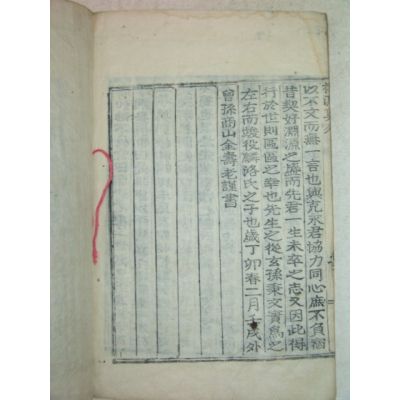 以不文而無一言也與克永君協力同心庶不負宿
昔契好淵源之厚而先君一生未卒之志又因此得
行於世則區區之幸也先生之從玄孫秉文實爲之
左右而竣役麟洛氏之子也歲丁卯春二月壬戌外
曾孫商山金壽老謹書